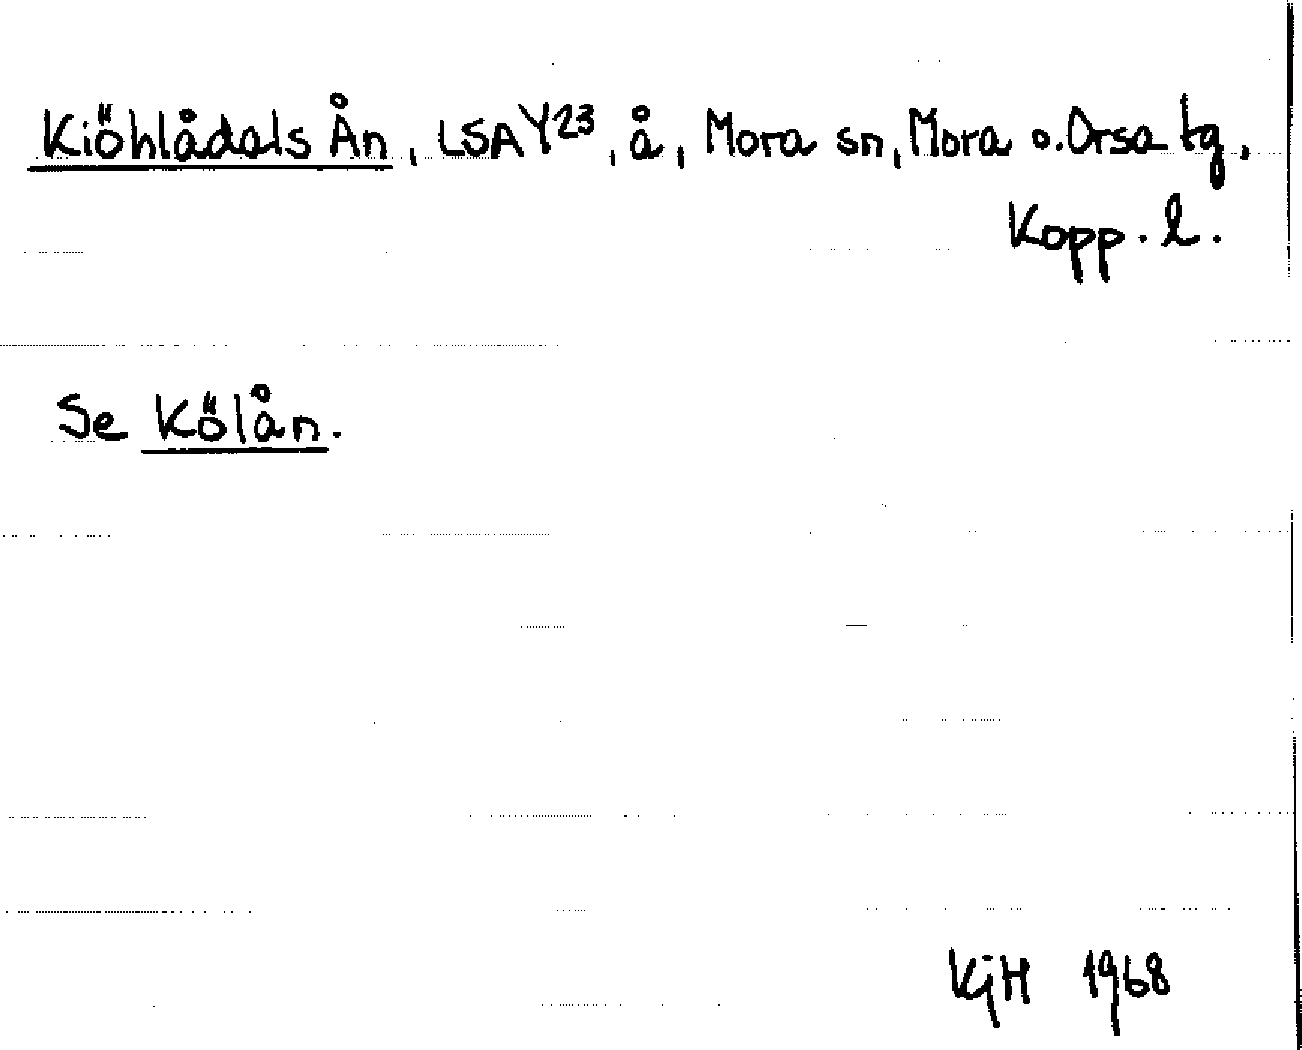 Kiöhlådals Ån, LSA Y23, å, Mora sn, Mora o. Orsa tg,
Kopp. l.
Se Kölån.
KjH 1968